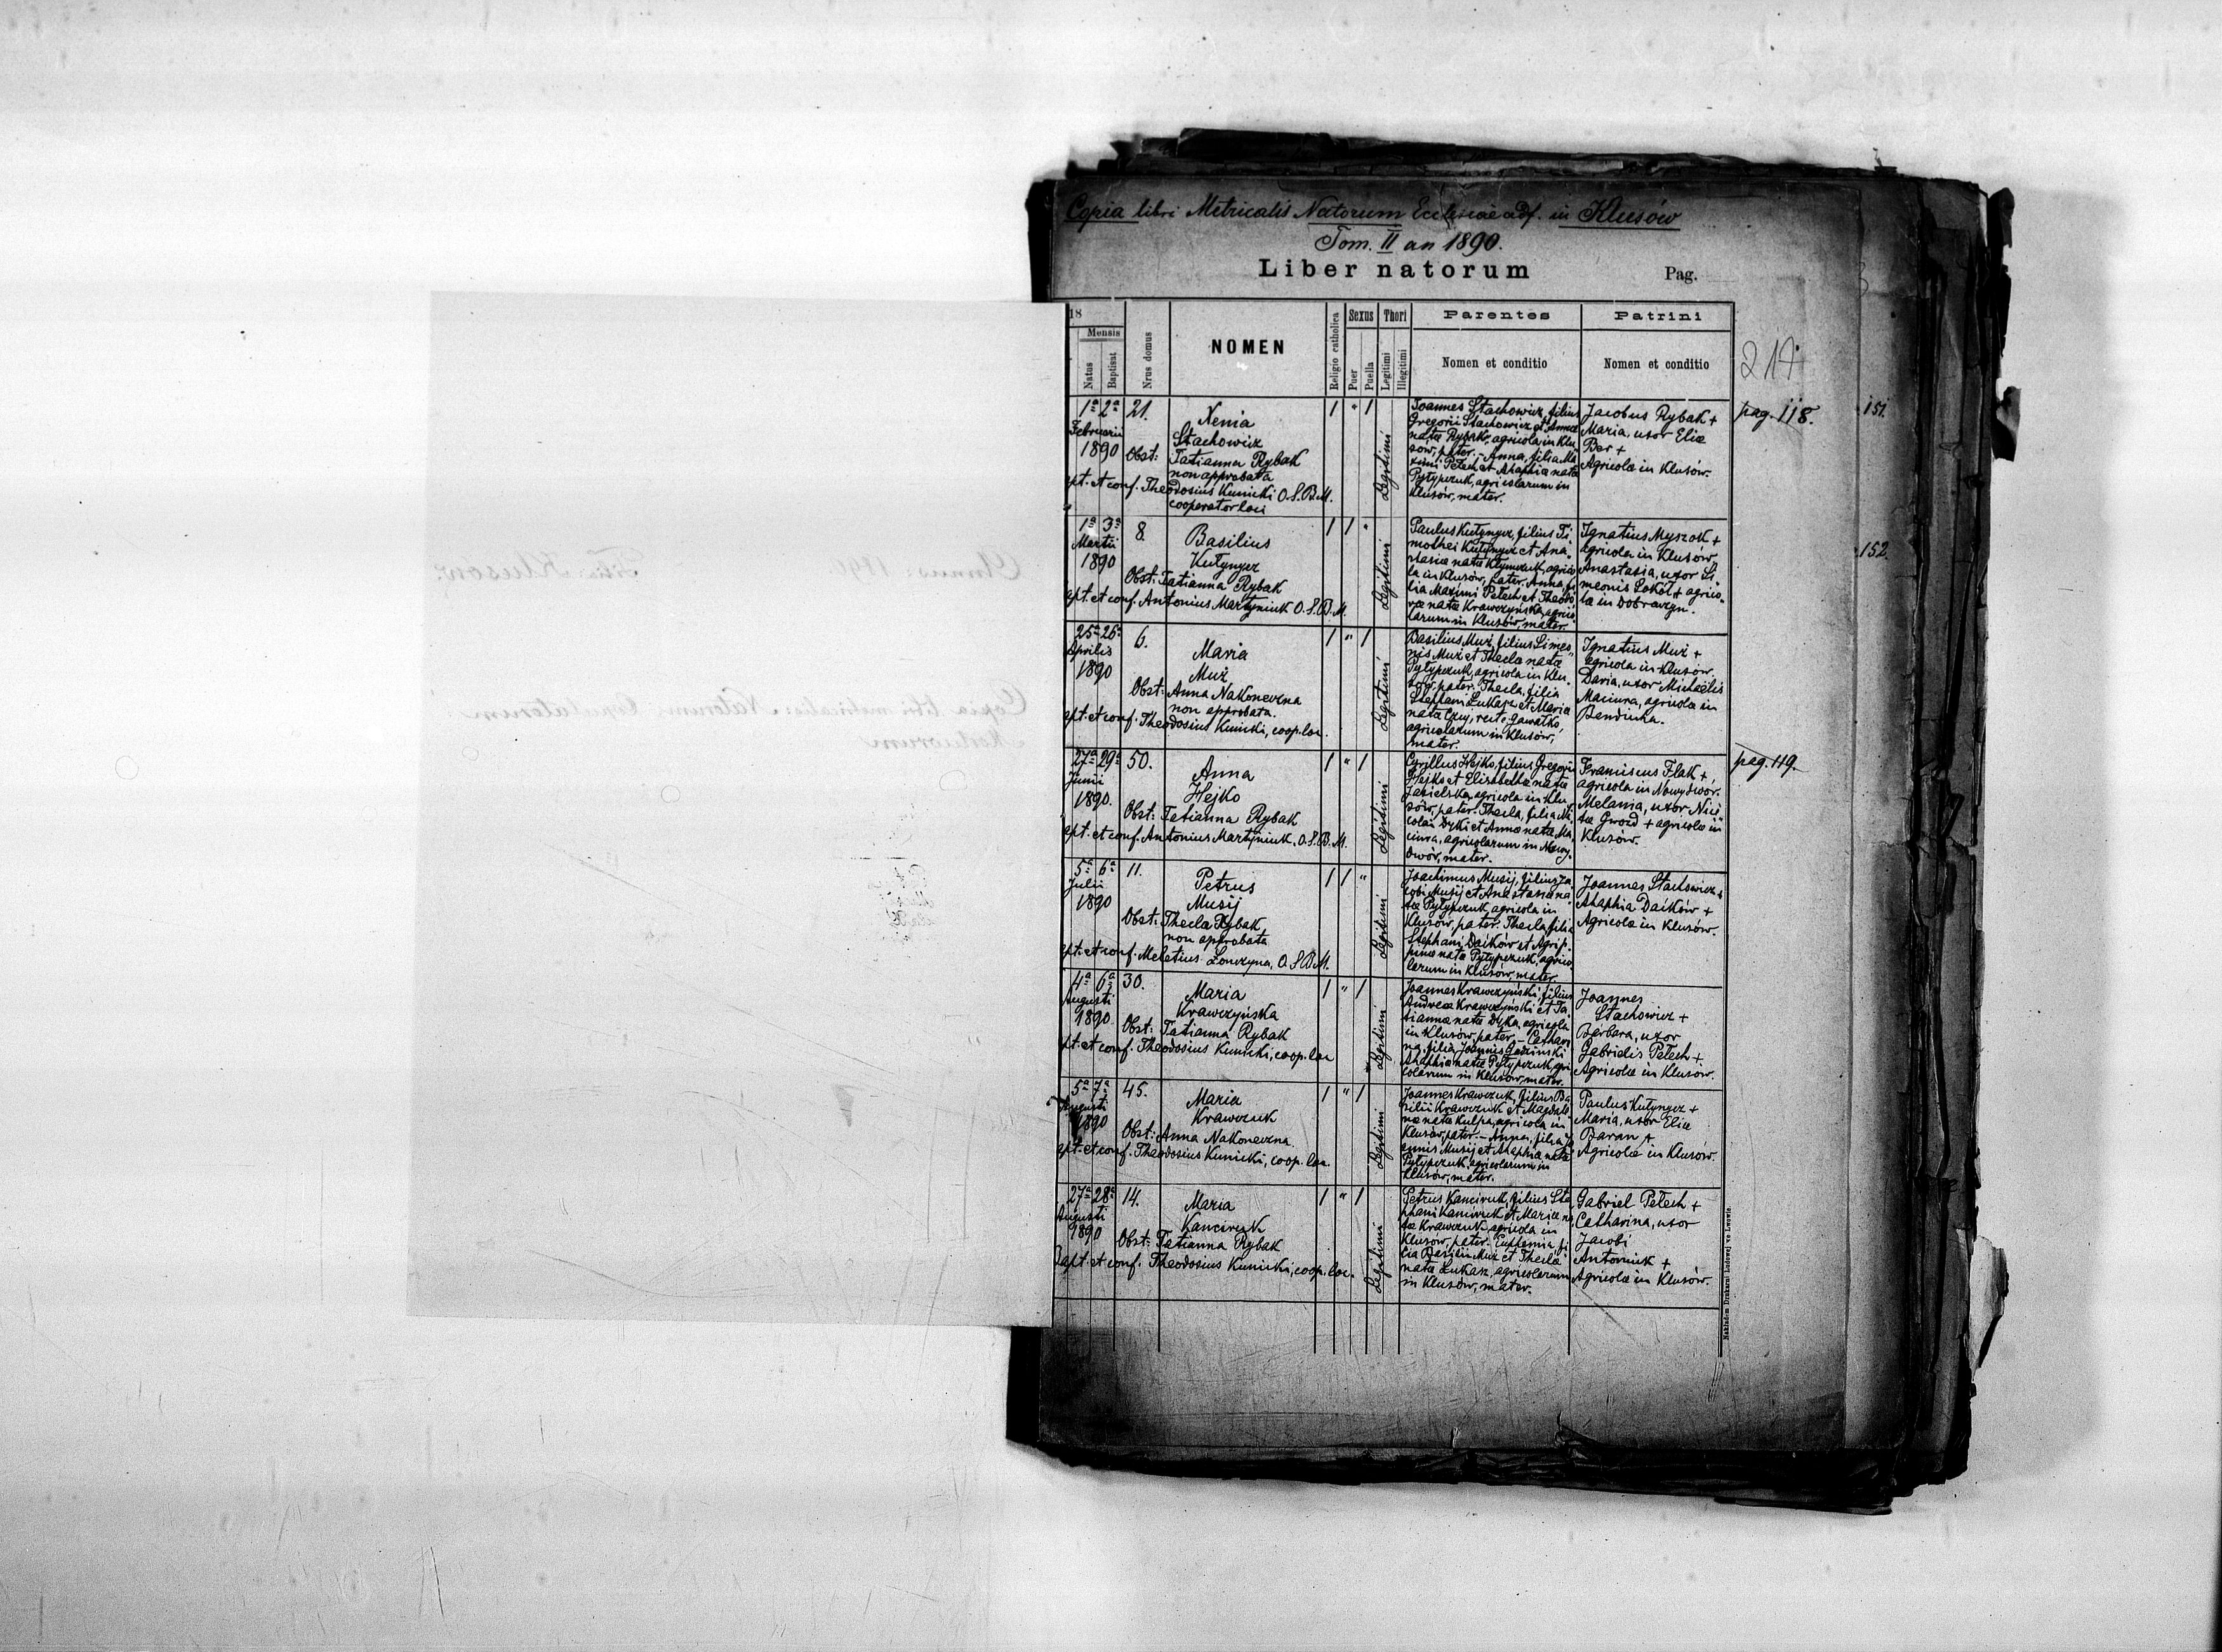 Copia libri Metricalis Natorum Ecclesiae adf. in Klusów
Tom. II an 1890.
Liber natorum
Pag.
18
Mensis
Natus
Baptisat
Nrus domus
NOMEN
Religio catholica
Sexus
Puer
Puella
Thori
Legitimi
Illegitimi
Parentes
Nomen et conditio
Patrini
Nomen et conditio
214
1ª 2ª
Februarii
1890
21.
Xenia
Stachowicz
Obst: Tatianna Rybak
non approbata
pt. et conf. Theodosius Kunicki O.S.B.M.
cooperator loci
1 " 1
Legitimi
Joannes Stachowicz, filius
Gregorii Stachowicz et Annae
natae Rybak, agricola in Klu
sów, pater. - Anna, filia Ma
ximi Pełech et Ahaphiae natae
Pyłypczuk, agricolarum in
Klusów, mater.
Jacobus Rybak +
Maria, uxor Eliae
Ber +
Agricolae in Klusów.
pag. 118.
151.
1ª 3ª
Martii
1890
8.
Basilius
Kutynycz
Obst: Tatianna Rybak
apt. et conf. Antonius Martyniuk O.S.B.M.
1 1 "
Legitimi
Paulus Kutynycz, filius Ti
mothei Kutynycz et Ana
stasiae natae Klymczuk, agrico
la in Klusów, pater. Anna, fi
lia Maximi Pełech et Theodo
rae natae Krawczyńska, agrico
larum in Klusów, mater.
Ignatius Myszok +
agricola in Klusów,
Anastasia, uxor Si
meonis Sokół + agrico
lae in Dobraczyn.
152
25ª 26ª
Aprilis
1890
6.
Maria
Muż
Obst: Anna Nakoneczna
non approbata.
apt. et conf. Theodosius Kunicki, coop. loc.
1 " 1
Legitimi
Basilius Muż, filius Simeo
nis Muż et Theclae natae
Pyłypczuk, agricola in Klu
sów, pater. Thecla, filia
Stephani Łukasz et Mariae
natae Czuj, recte Gawałko
agricolarum in Klusów,
mater.
Ignatius Muż +
agricola in Klusów,
Daria, uxor Michaelis
Maciura, agricolae in
Bendiucha.
27ª 29ª
Junii
1890.
50.
Anna
Hejko
Obst: Tatianna Rybak
apt. et conf. Antonius Martyniuk, O.S.B.M.
1 " 1
Legitimi
Cyrillus Hejko, filius Gregorii
Hejko et Elisabethae natae
Jasielska, agricola in Klu
sów, pater. Thecla, filia Ni
colai Dyki et Annae natae Ma
ciura, agricolarum in Nowy
dwór, mater.
Franciscus Flak +,
agricola in Nowydwór.
Melania, uxor Nici
tae Gwozd + agricolae in
Klusów.
pag. 119.
5ª 6ª
Julii
1890
11.
Petrus
Musij
Obst: Thecla Rybak
non approbata
pt. et conf. Meletius Łonczyna, O.S.B.M.
1 1 "
Legitimi
Joachimus Musij, filius Ja
cobi Musij et Anastasiae na
tae Pyłypczuk, agricola in
Klusów, pater. Thecla, filia
Stephani Daćków et Agrip
pinae natae Pyłypczuk, agrico
larum in Klusów, mater.
Joannes Stachowicz +
Ahaphia Daćków +
Agricolae in Klusów.
4ª 6ª
Augusti
1890
30.
Maria
Krawczyńska
Obst: Tatianna Rybak
pt. et conf. Theodosius Kunicki, coop. loc
1 " 1
Legitimi
Joannes Krawczyński, filius
Andreae Krawczyński et Ta
tiannae natae Dyka, agricola
in Klusów, pater. - Cathari
na, filia Joannis
Ahaphiae natae Pyłypczuk, agri
colarum in Klusów, mater.
Joannes
Stachowicz +
Barbara, uxor
Gabrielis Pełech +
Agricolae in Klusów.
5ª 7ª
Augusti
1890
45.
Maria
Krawczuk
Obst: Anna Nakoneczna
apt. et conf. Theodosius Kunicki, coop. loc.
1 " 1
Legitimi
Joannes Krawczuk, filius Ba
silii Krawczuk et Magdale
nae natae Kulpa, agricola in
Klusów, pater. - Anna, filia Jo
annis Musij et Ahaphiae natae
Pyłypczuk, agricolarum in
Klusów, mater.
Paulus Kutynycz +
Maria, uxor Eliae
Baran +
Agricolae in Klusów.
27ª 28ª
Augusti
1890
14.
Maria
Kanciruk
Obst: Tatianna Rybak
Bapt. et conf. Theodosius Kunicki, coop. loc.
1 " 1
Legitimi
Petrus Kanciruk, filius Ste
phani Kanciruk et Mariae na
tae Krawczuk, agricola in
Klusów, pater. Euphemia, fi
lia Basilii Muż et Theclae
natae Łukasz, agricolarum
in Klusów, mater.
Gabriel Pełech +
Catharina, uxor
Jacobi
Antoniuk +
Agricolae in Klusów.
Nakładem Drukarni Ludowej we Lwowie